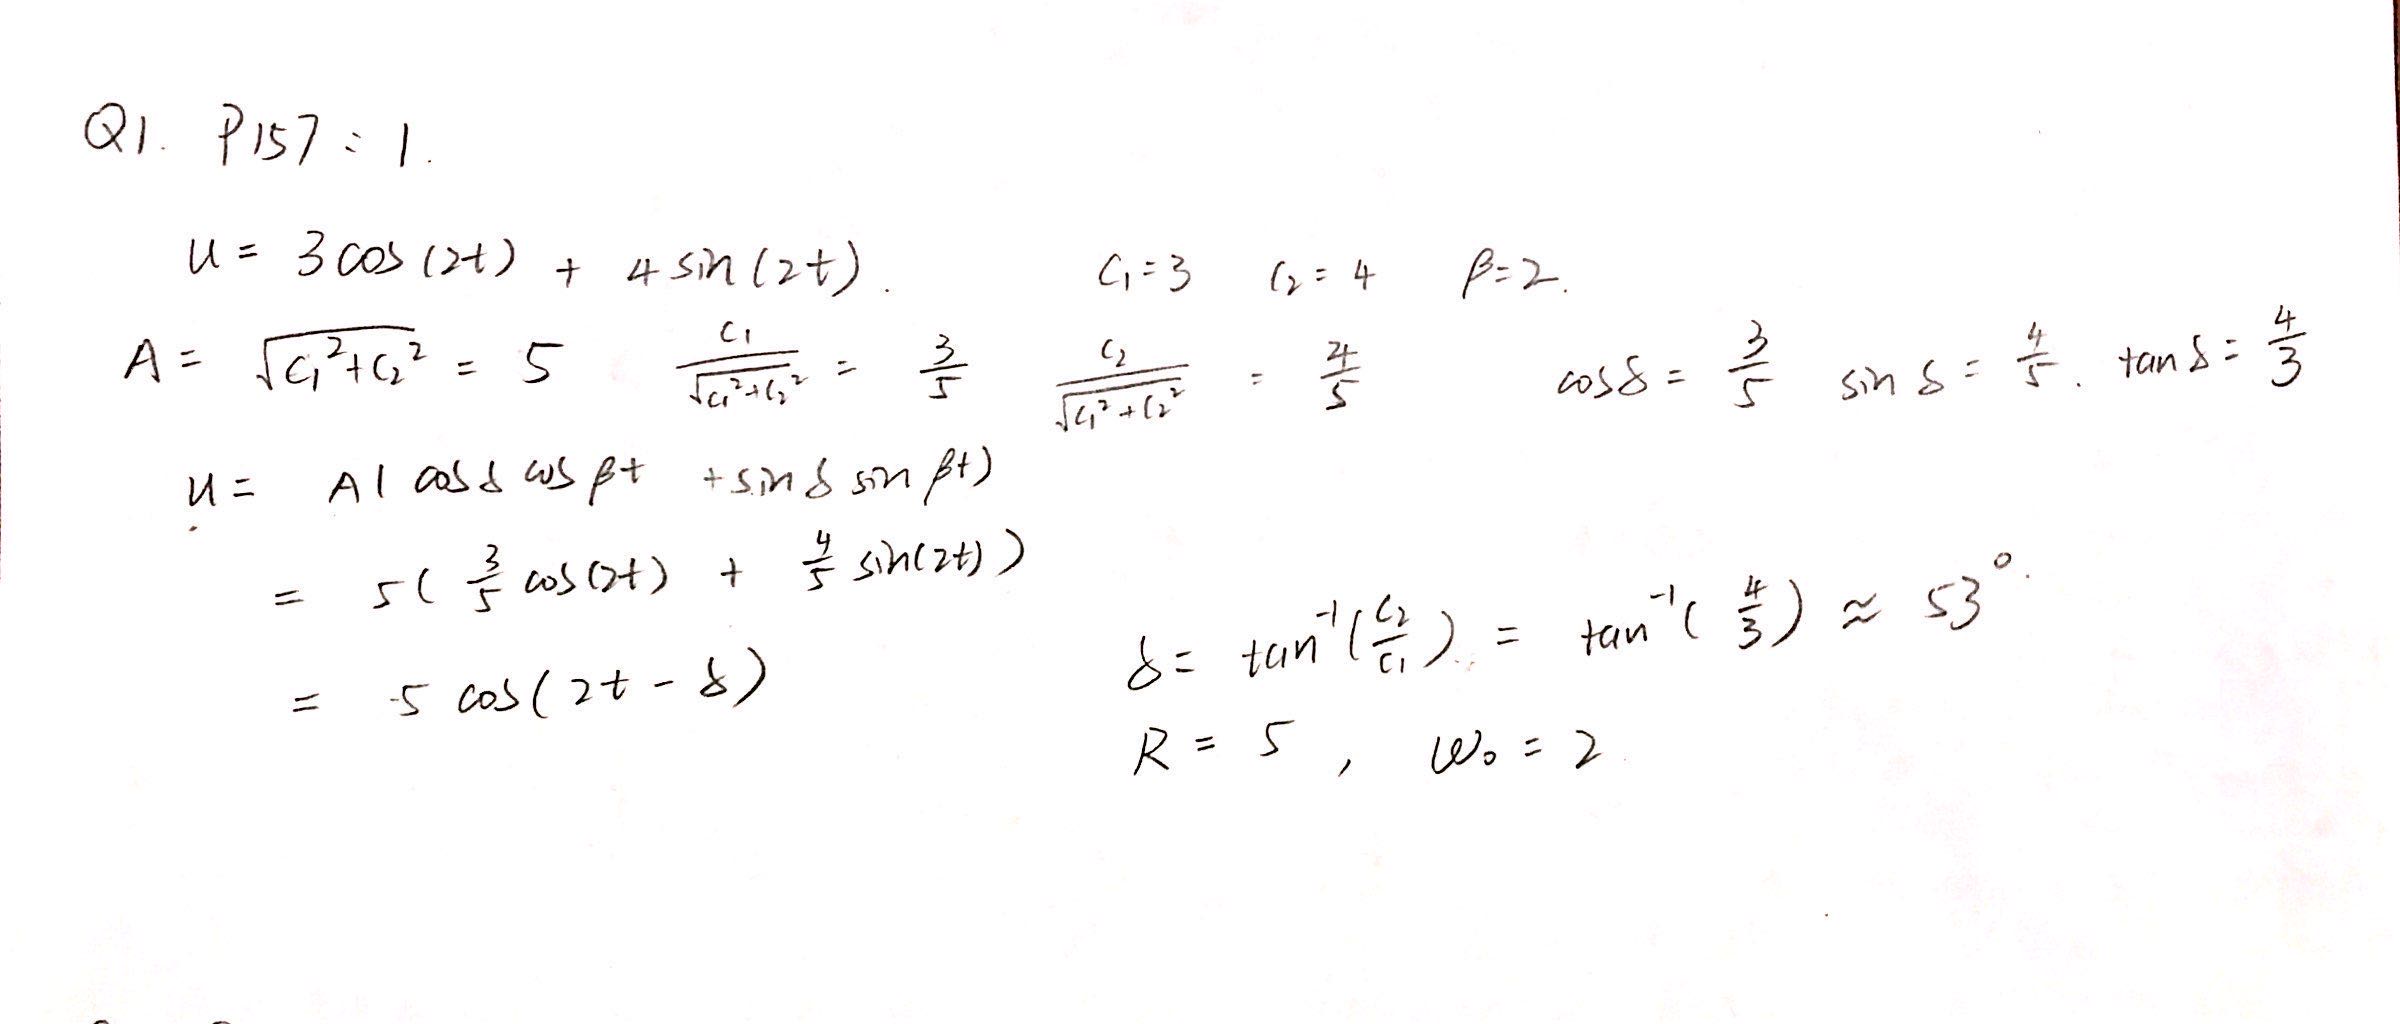 Q1. P157 : 1.
u = 3 cos (2t) + 4 sin (2t). C₁ = 3 C₂ = 4 β = 2.
A = √(C₁² + C₂²) = 5 C₁/√(C₁² + C₂²) = 3/5 C₂/√(C₁² + C₂²) = 4/5 cos δ = 3/5 sin δ = 4/5. tan δ = 4/3
u = A ( cos δ cos βt + sin δ sin βt)
= 5 ( 3/5 cos (2t) + 4/5 sin (2t) )
δ = tan⁻¹ (C₂/C₁) = tan⁻¹ ( 4/3 ) ≈ 53°.
= 5 cos ( 2t - δ )
R = 5 , ω₀ = 2